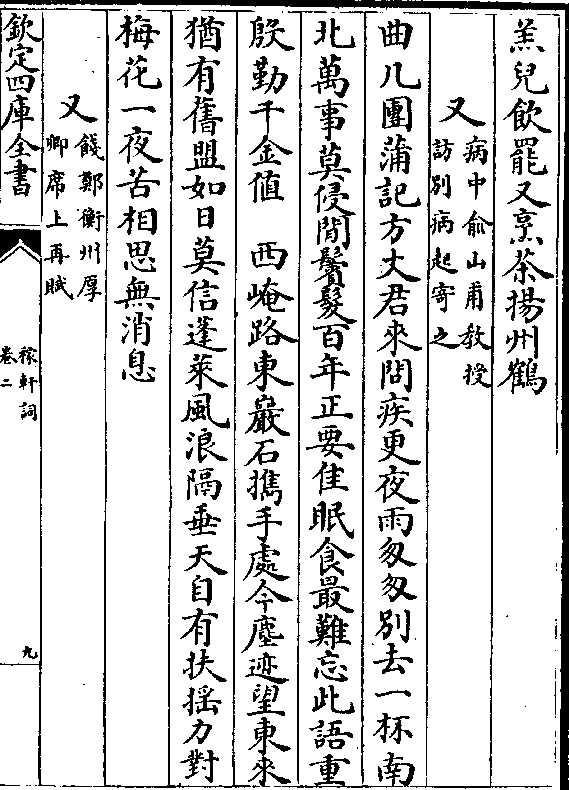 羔兒飲罷又烹茶揚州鶴
又
病中俞山甫教授
訪別病起寄之
曲几團蒲記方丈君來問疾更夜雨匆匆別去一杯南
北萬事莫侵閒鬢髮百年正要佳眠食最難忘此語重
殷勤千金値 西崦路東巖石攜手處今塵迹望東來
猶有舊盟如日莫信蓬萊風浪隔垂天自有扶搖力對
梅花一夜苦相思無消息
又
餞鄭衡州厚
卿席上再賦
欽定四庫全書
稼軒詞
卷二
九